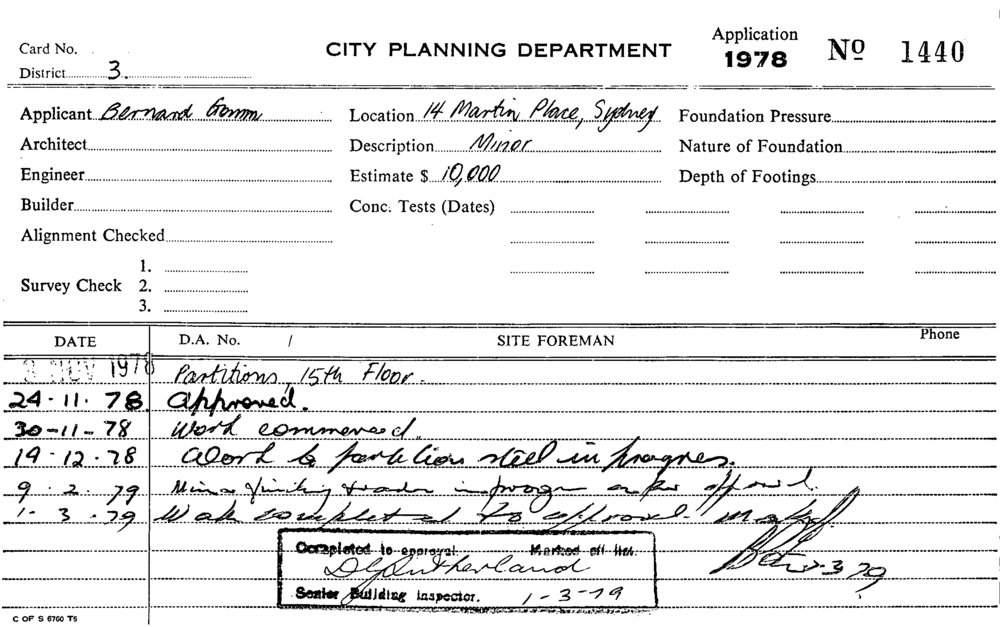 Card No.
CITY PLANNING DEPARTMENT
Application
1978
Nº 1440
District 3.
Applicant Bernard Gomm
Location 14 Martin Place, Sydney
Foundation Pressure
Architect
Description Minor
Nature of Foundation
Engineer
Estimate $ 10,000
Depth of Footings
Builder
Conc. Tests (Dates)
Alignment Checked
Survey Check
1.
2.
3.
DATE D.A. No. / SITE FOREMAN Phone
NOV 1978 Partitions, 15th Floor.
24-11-78 Approved.
30-11-78 Work commenced.
19-12-78 Work to partition steel in progress.
9.2.79 Minor finishing trades in progress as per approval.
1-3-79 Work completed to approval.
Completed to approval. Marked off list.
DGSutherland
3 79
Senior Building Inspector. 1-3-79
C OF S 6760 T5